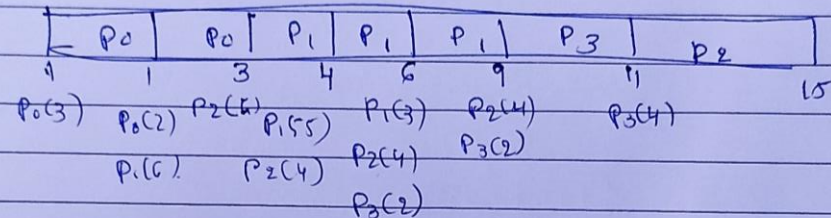 P0 P0 P1 P1 P1 P3 P2
1 3 4 6 9 11 15
P0(3) P0(2) P2(4) P1(5) P1(3) P2(4) P3(4)
P1(6) P2(4) P2(4) P3(2)
P3(2)